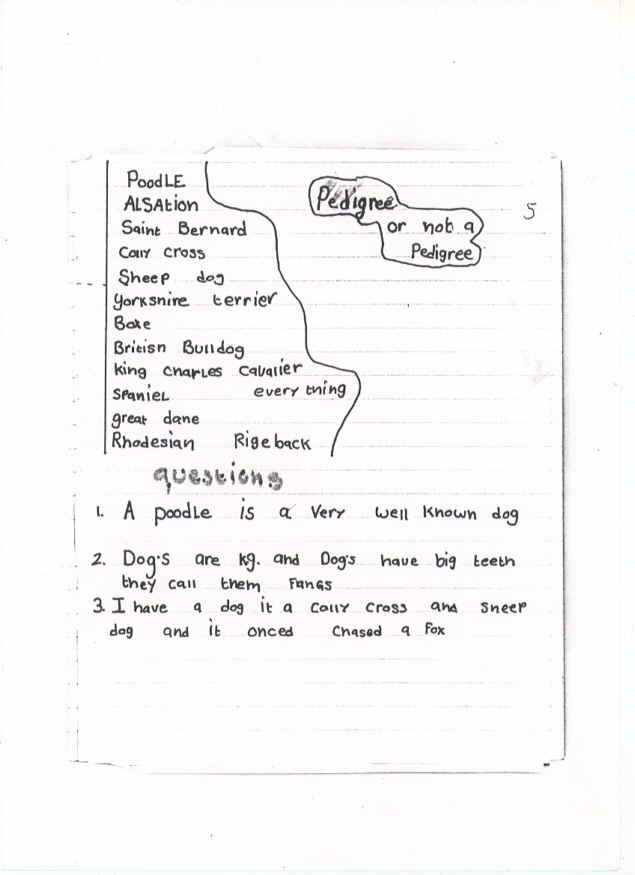 PoodLE
ALSAtion
Saint Bernard
Colly cross
Sheep dog
yorkshire terrier
Boxe
British Bulldog
king charLes cavalier
SPanieL every thing
great dane
Rhodesian Rigeback
Pedigree
or not a
Pedigree
5
questions
1. A poodle is a very well known dog
2. Dog's are kg. and Dog's have big teeth
they call them Fangs
3. I have a dog it a colly cross and sheep
dog and it onced chased a Fox